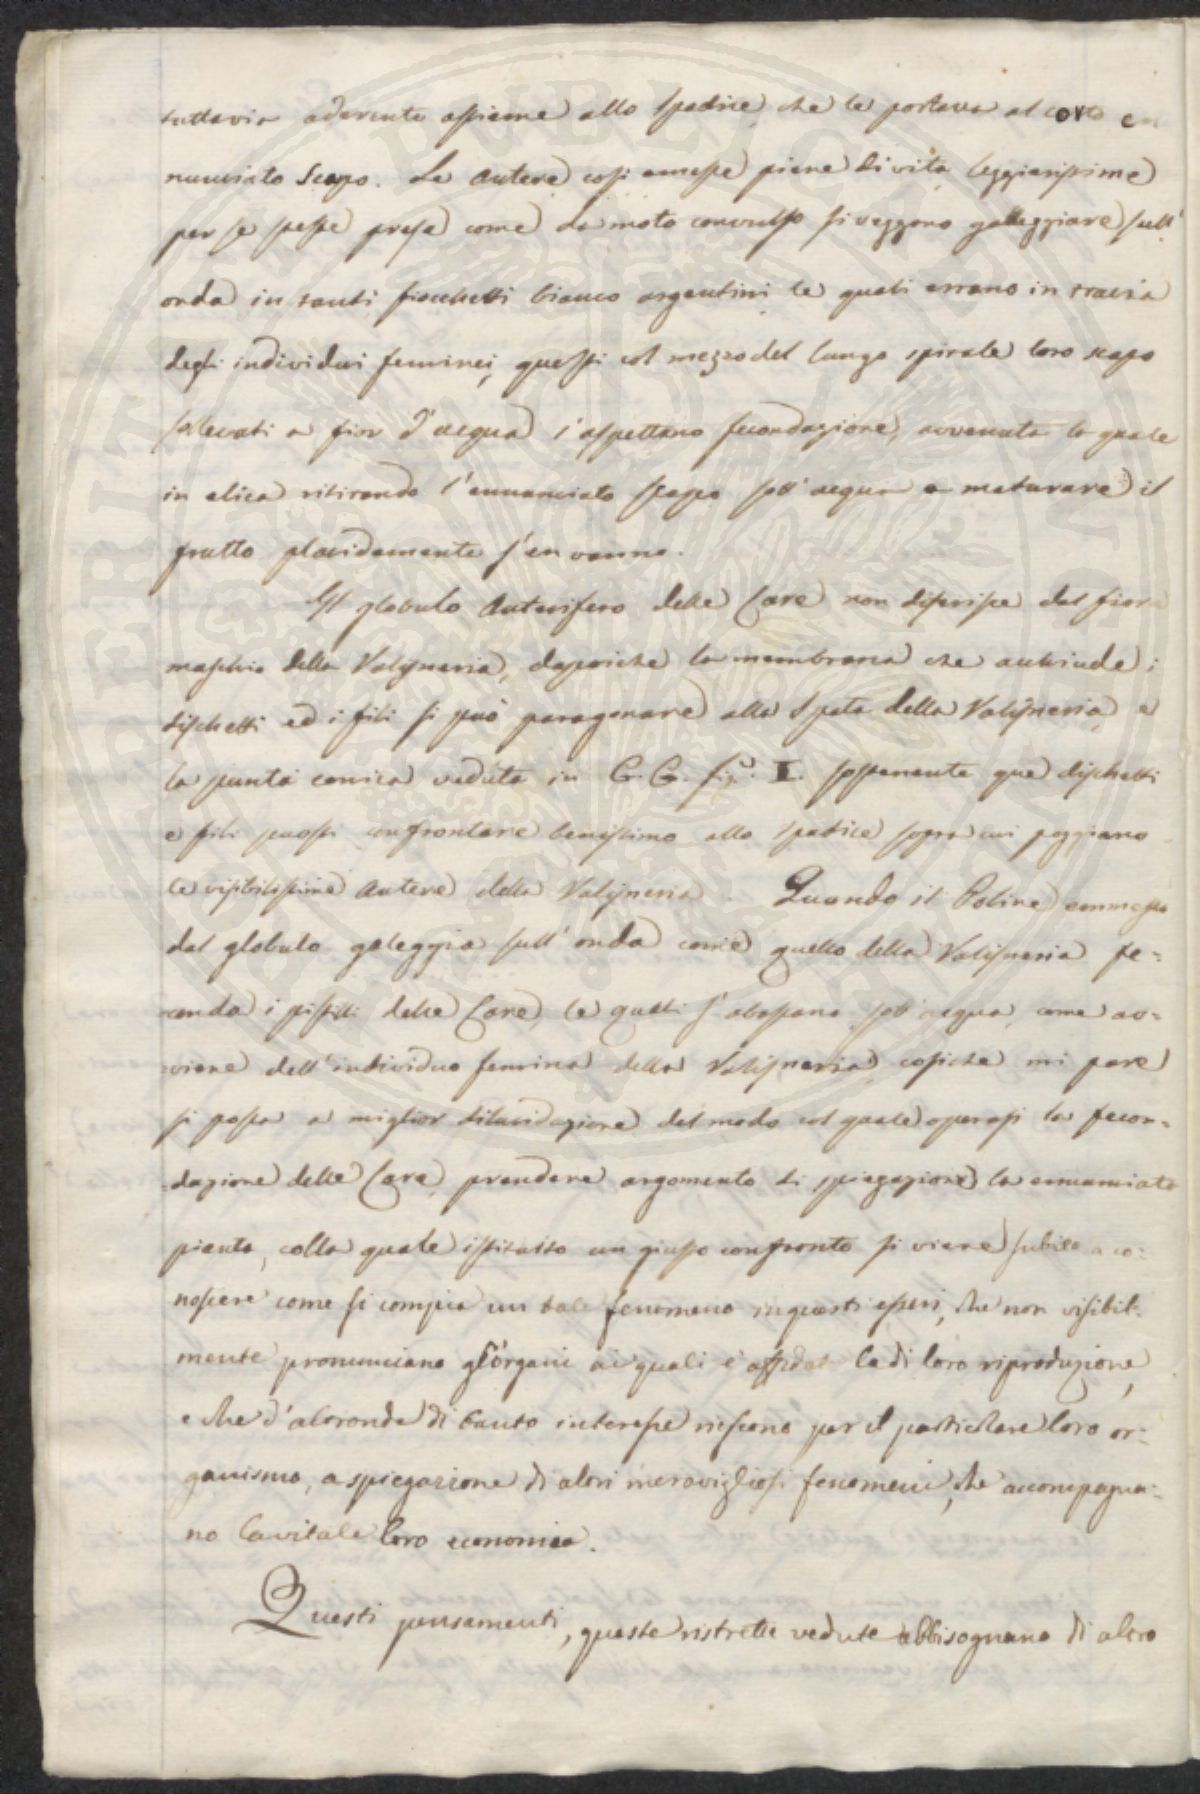 tuttavia aderente assieme allo spadice, che le portava al corto e
nunciato Scapo. Le Antere così emesse piene di vita leggierissime
per se stesse prese come da moto convulso si veggono galleggiare sull'
onda in tanti fiocchetti bianco argentini le quali errano in traccia
degli individui feminei, questi col mezzo del lungo spirale loro scapo
sollevati a fior d'acqua s'aspettano fecondazione, avvenuta la quale
in elica ritirando l'ennunciato scapo sott'acqua a maturare il
frutto placidamente s'en vanno.
Il globulo Anterifero delle Care non diferisce dal fiore
maschio della Valisneria, dapoiché la membrana che anchiude i
dischetti ed i fili si può paragonare alla Spata della Valisneria, e
la punta conica veduta in G. G. fig.ª I. sostenente que' dischetti
e fili puossi confrontare benissimo allo spadice sopra cui poggiano
le visibilissime Antere della Valisneria. Quando il Poline emmesso
dal globulo galeggia sull'onda come quello della Valisneria fe=
conda i pistilli delle Care, le quali s'abassano sott'acqua, come av=
viene dell'individuo femina della Valisneria, cosiché mi pare
si possa a miglior dilucidazione del modo col quale operasi la fecon=
=dazione delle Care, prendere argomento di spiegazione la ennunciata
pianta, colla quale istituito un giusto confronto si viene subito a co=
noscere come si compia un tale fenomeno in questi esseri, che non visibil=
mente pronunciano gl'organi ai quali è affidata la di loro riproduzione,
e che d'altronde di tanto interesse riescono per il particolare loro or=
ganismo, a spiegazione di altri meravigliosi fenomeni, che accompagna=
no la vitale loro economia.
Questi pensamenti, queste ristrette vedute abbisognano di altro